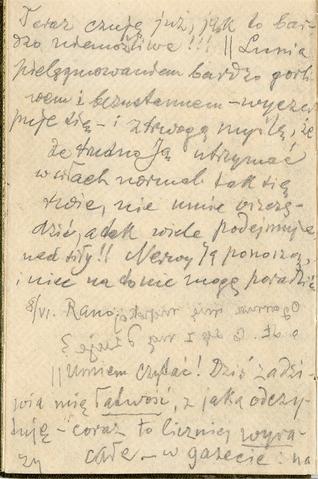 Teraz czuję już, jak to bar-
dzo niemożliwe!!! || Lunia
pielęgnowaniem bardzo gorli-
wem i bezustannem – wyczer-
puje się – i z trwogą myślę, że
że trudno Ją utrzymać
w siłach normal. tak się
rwie, nie umie oszczę-
dzić, a tak wiele podejmuje
nad siły!! Nerwy Ją ponoszą,
i nic na to nie mogę poradzić
8/VI. Rano.
|| Umiem czytać! Dziś zadzi-
wia mię łatwość, z jaką odczy-
tuję – coraz to liczniej wyra-
zy całe – w gazecie: na